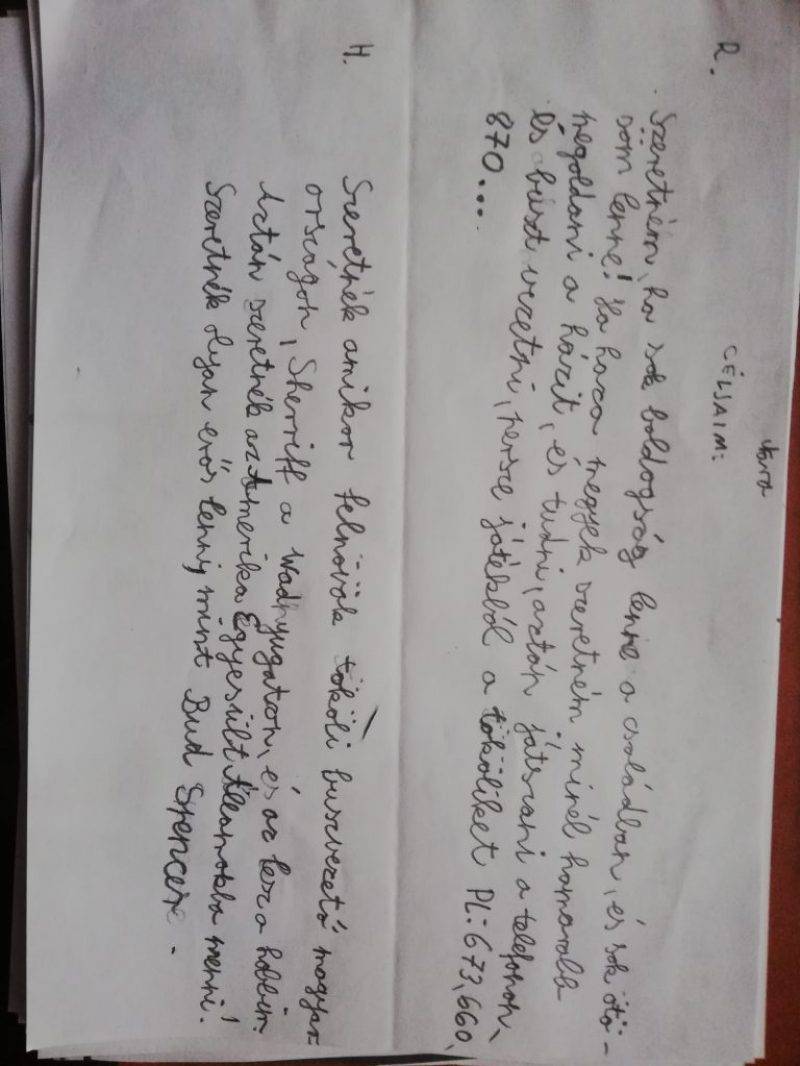 CÉLJAIM:
R.
Szeretném, ha sok boldogság lenne a családban, és sok ötö-
söm lenne! Ha haza megyek szeretném minél hamarabb
megoldani a házit, és tudni, aztán játszani a telefonon,
és buszt vezetni, persze játékból a tököliket Pl.: 673, 660,
870...
H.
Szeretnék amikor felnövök tököli buszvezető magyar
országon, Sherriff a Vadnyugaton, és az lesz a hobbim.
Aztán szeretnék az Amerika Egyesült Államokba menni!
Szeretnék olyan erős lenni, mint Bud Spencer.